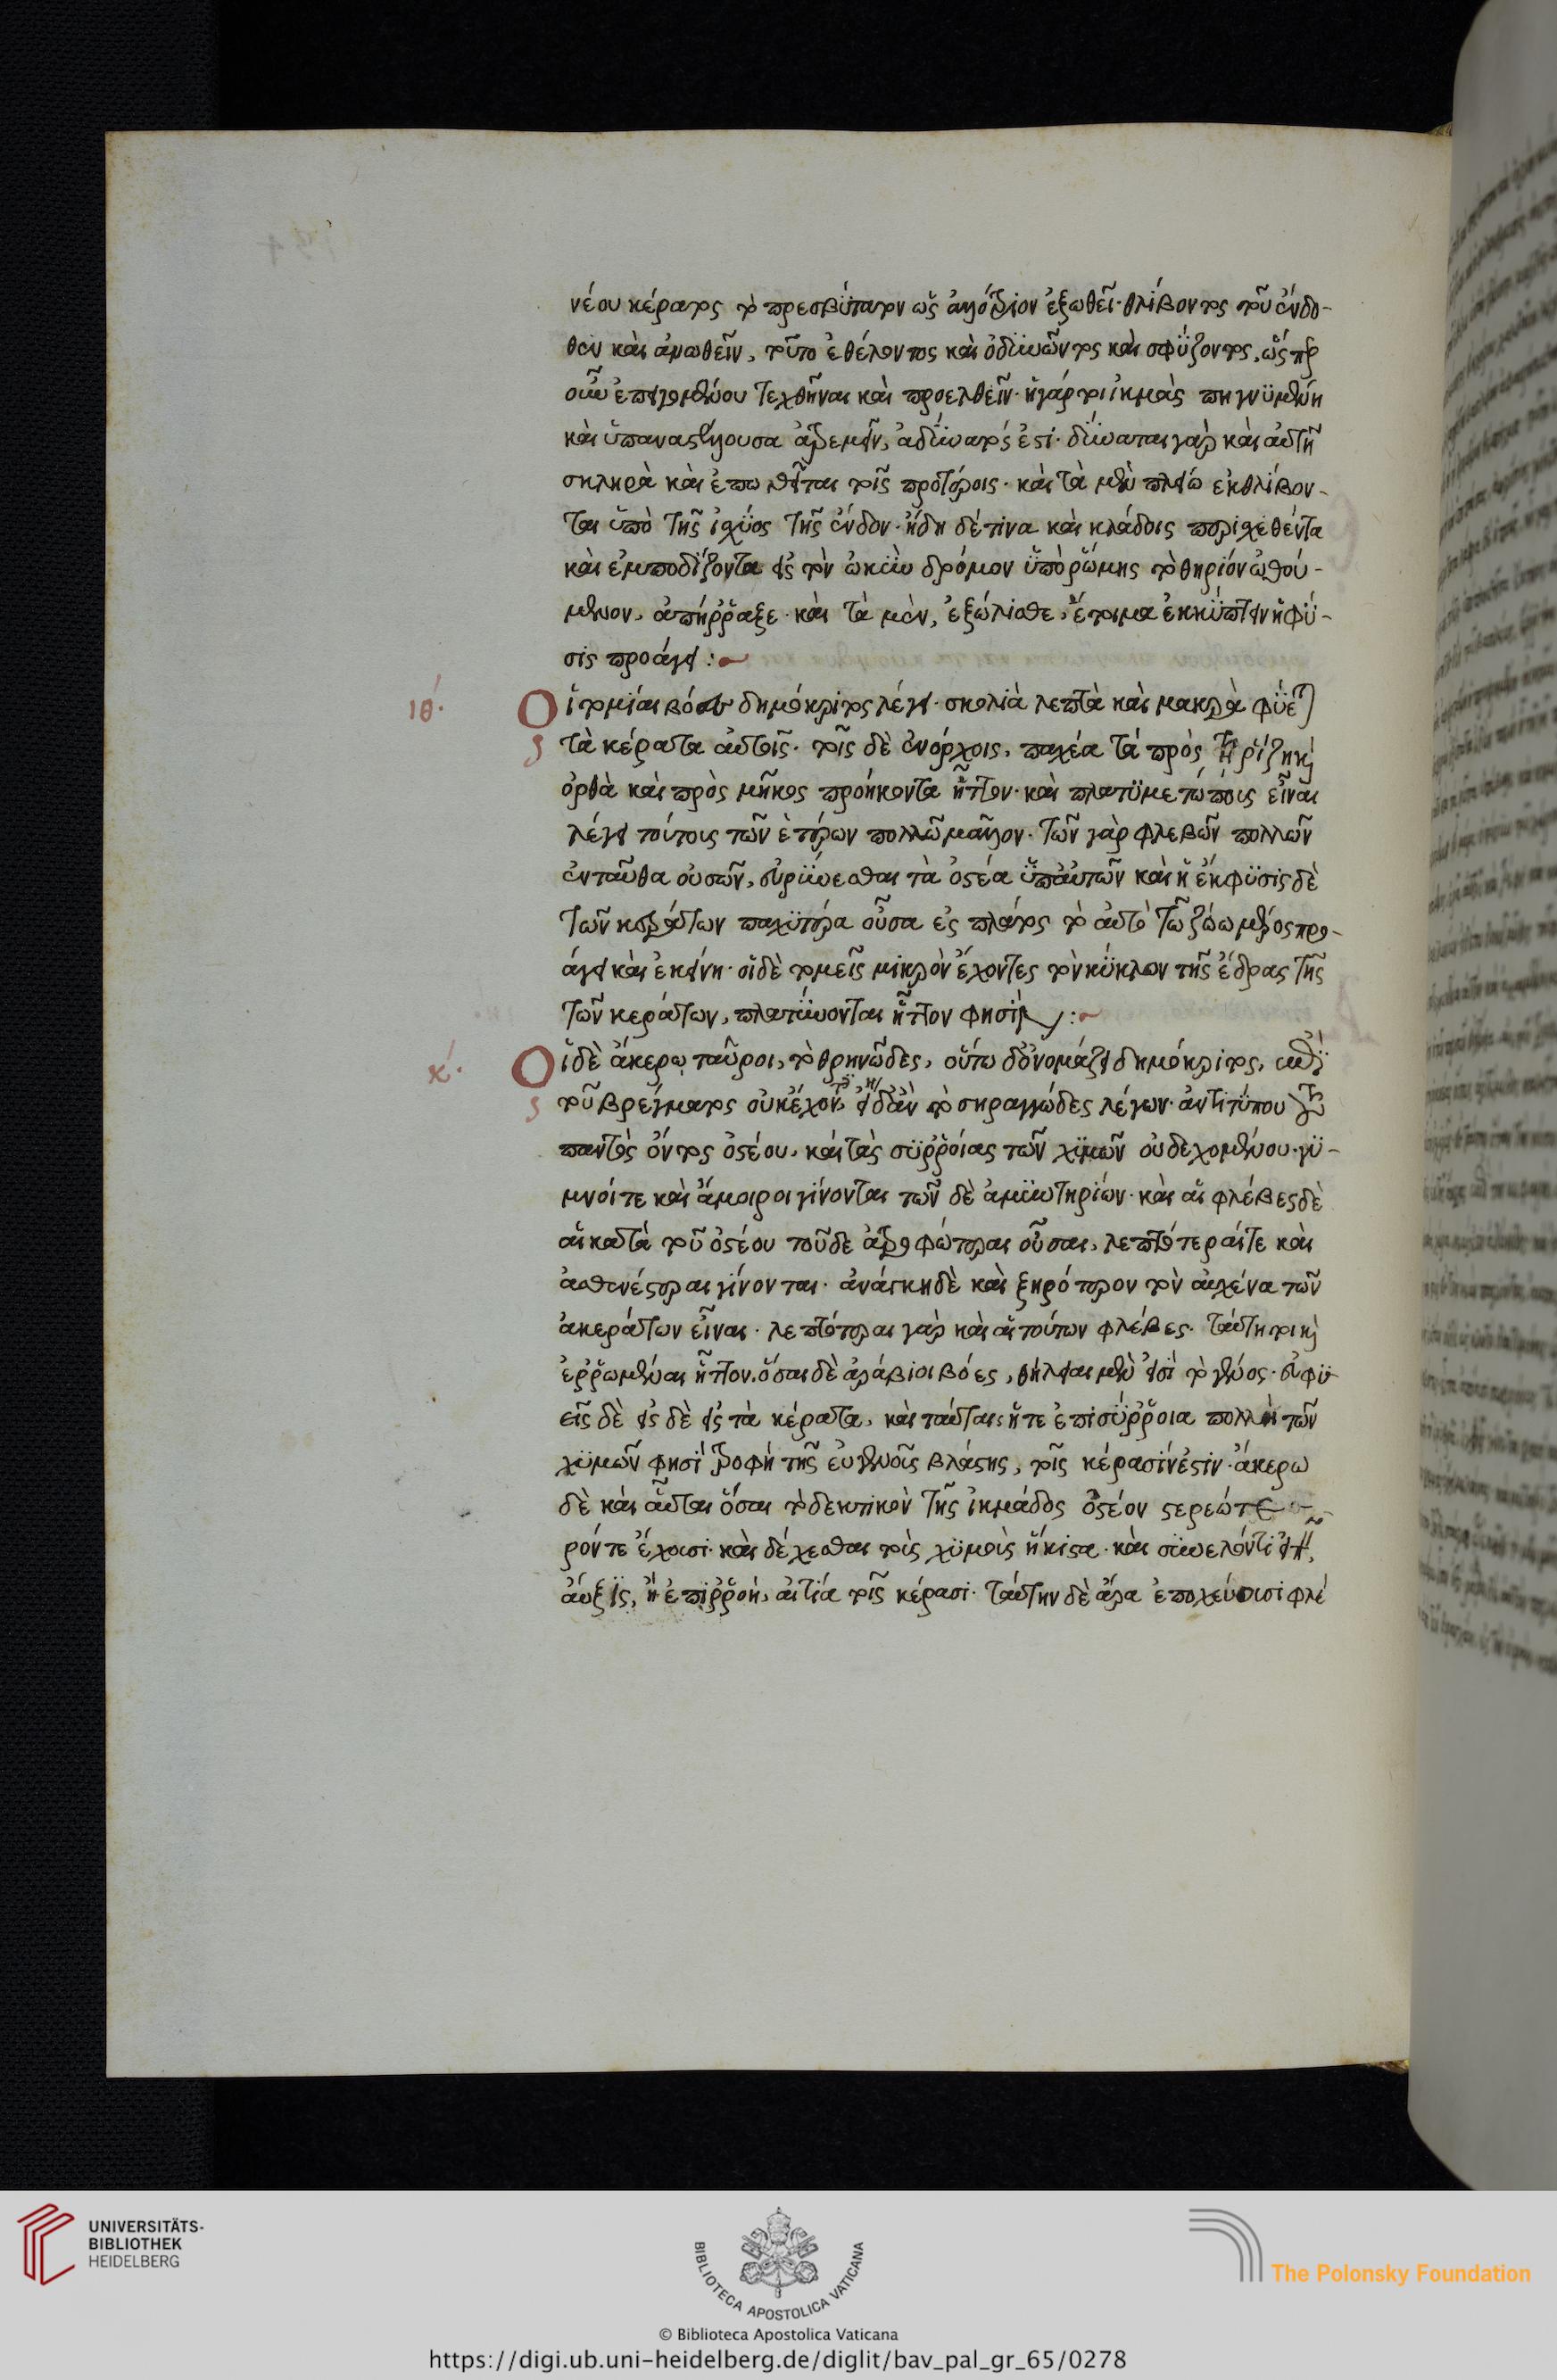 νέου κέρατος τὸ πρεσβύτατον ὡς ἀλλότριον ἐξωθεῖ· θλίβοντος τοῦ ἔνδο-
θεν καὶ ἀνωθεῖν, τοῦτο ἐθέλοντος καὶ ὀδϋνῶντος καὶ σφΰζοντος, ὥσπερ
οὖν ἐπειγομένου τεχθῆναι καὶ προελθεῖν· ἡ γάρ τοι ἰκμὰς πηγνϋμένη
καὶ ὑπαναστέλλουσα ἀτρεμεῖν, ἀδύνατός ἐστι· δύναται γὰρ καὶ αὐτὴ
σκληρὰ καὶ ἐπωθεῖται τοῖς προτέροις· καὶ τὰ μὲν πλείω ἐκθλίβον-
ται ὑπὸ τῆς ἰσχύος τῆς ἔνδον· ἤδη δέ τινα καὶ κλάδοις περισχεθέντα
καὶ ἐμποδίζοντα εἰς τὸν ὠκὺν δρόμον ὑπὸ ῥώμης τὸ θηρίον ὠθού-
μενον, ἀπήρραξε· καὶ τὰ μὲν, ἐξώλισθε, ἕτοιμα ἐκκύπτειν ἡ φύ-
σις προάγει :~
ιθ΄· Οἱ τομίαι βόες δημόκριτος λέγει· σκολιὰ λεπτὰ καὶ μακρὰ φύεται
τὰ κέρατα αὐτοῖς· τοῖς δὲ ἐνόρχοις, παχέα τὰ πρὸς τῇ ῥίζῃ καὶ
ὀρθὰ καὶ πρὸς μῆκος προήκοντα ἧττον· καὶ πλατυμετώποις εἶναι
λέγει τούτοις τῶν ἑτέρων πολλῶ μᾶλλον· τῶν γὰρ φλεβῶν πολλῶν
ἐνταῦθα οὐσῶν, εὐρύνεσθαι τὰ ὀστέα ὑπ' αὐτῶν καὶ ἡ ἔκφυσις δὲ
τῶν κεράτων παχυτέρα οὖσα ἐς πλάτος τὸ αὐτὸ τῶ ζώω μέρος προ-
άγει καὶ ἐκείνη· οἱ δὲ τομεῖς μικρὸν ἔχοντες τὸν κύκλον τῆς ἕδρας τῆς
τῶν κεράτων, πλατύνονται ἧττον φησίν :~
κ΄· Οἱ δὲ ἄκερω ταῦροι, τὸ θρηνῶδες, οὕτω δ' ὀνομάζει δημόκριτος, ἐπὶ
τοῦ βρέγματος οὐκ ἔχοντες εἴη δ' ἂν τὸ σηραγγῶδες λέγων· ἀντιτύπου τοῦ
παντὸς ὄντος ὀστέου, καὶ τὰς συρροίας τῶν χυμῶν οὐ δεχομένου· γυ-
μνοί τε καὶ ἄμοιροι γίνονται τῶν δὲ ἀμυντηρίων· καὶ αἱ φλέβες δὲ
αἱ κατὰ τοῦ ὀστέου τοῦδε ἀτροφώτεραι οὖσαι, λεπτότεραί τε καὶ
ἀσθενέστεραι γίνονται· ἀνάγκη δὲ καὶ ξηρότερον τὸν αὐχένα τῶν
ἀκεράτων εἶναι· λεπτότεραι γὰρ καὶ αἱ τούτων φλέβες· ταύτη τοι καὶ
ἐρρωμέναι ἧττον. ὅσαι δὲ ἀράβιοι βόες, θήλειαι μὲν εἰσὶ τὸ γένος· εὐφυ-
εῖς δὲ εἰς δὲ εἰς τὰ κέρατα, καὶ ταύταις ἥ τε ἐπισύρροια πολλὴ τῶν
χυμῶν φησί τροφὴ τῆς εὐγενοῦς βλάστης, τοῖς κέρασίν ἐστιν· ἄκερω
δὲ καὶ αὗται ὅσαι τὸ δεκτικὸν τῆς ἰκμάδος ὀστέον στερεώτε-
ρόν τε ἔχουσι· καὶ δέχεσθαι τοὺς χυμοὺς ἥκιστα· καὶ συνελόντι εἰπεῖν,
αὔξης, ἡ ἐπιρροὴ, αἰτία τοῖς κέρασι· ταύτην δὲ ἄρα ἐποχετεύουσι φλέ
UNIVERSITÄTS-
BIBLIOTHEK
HEIDELBERG
BIBLIOTECA APOSTOLICA VATICANA
The Polonsky Foundation
© Biblioteca Apostolica Vaticana
https://digi.ub.uni-heidelberg.de/diglit/bav_pal_gr_65/0278